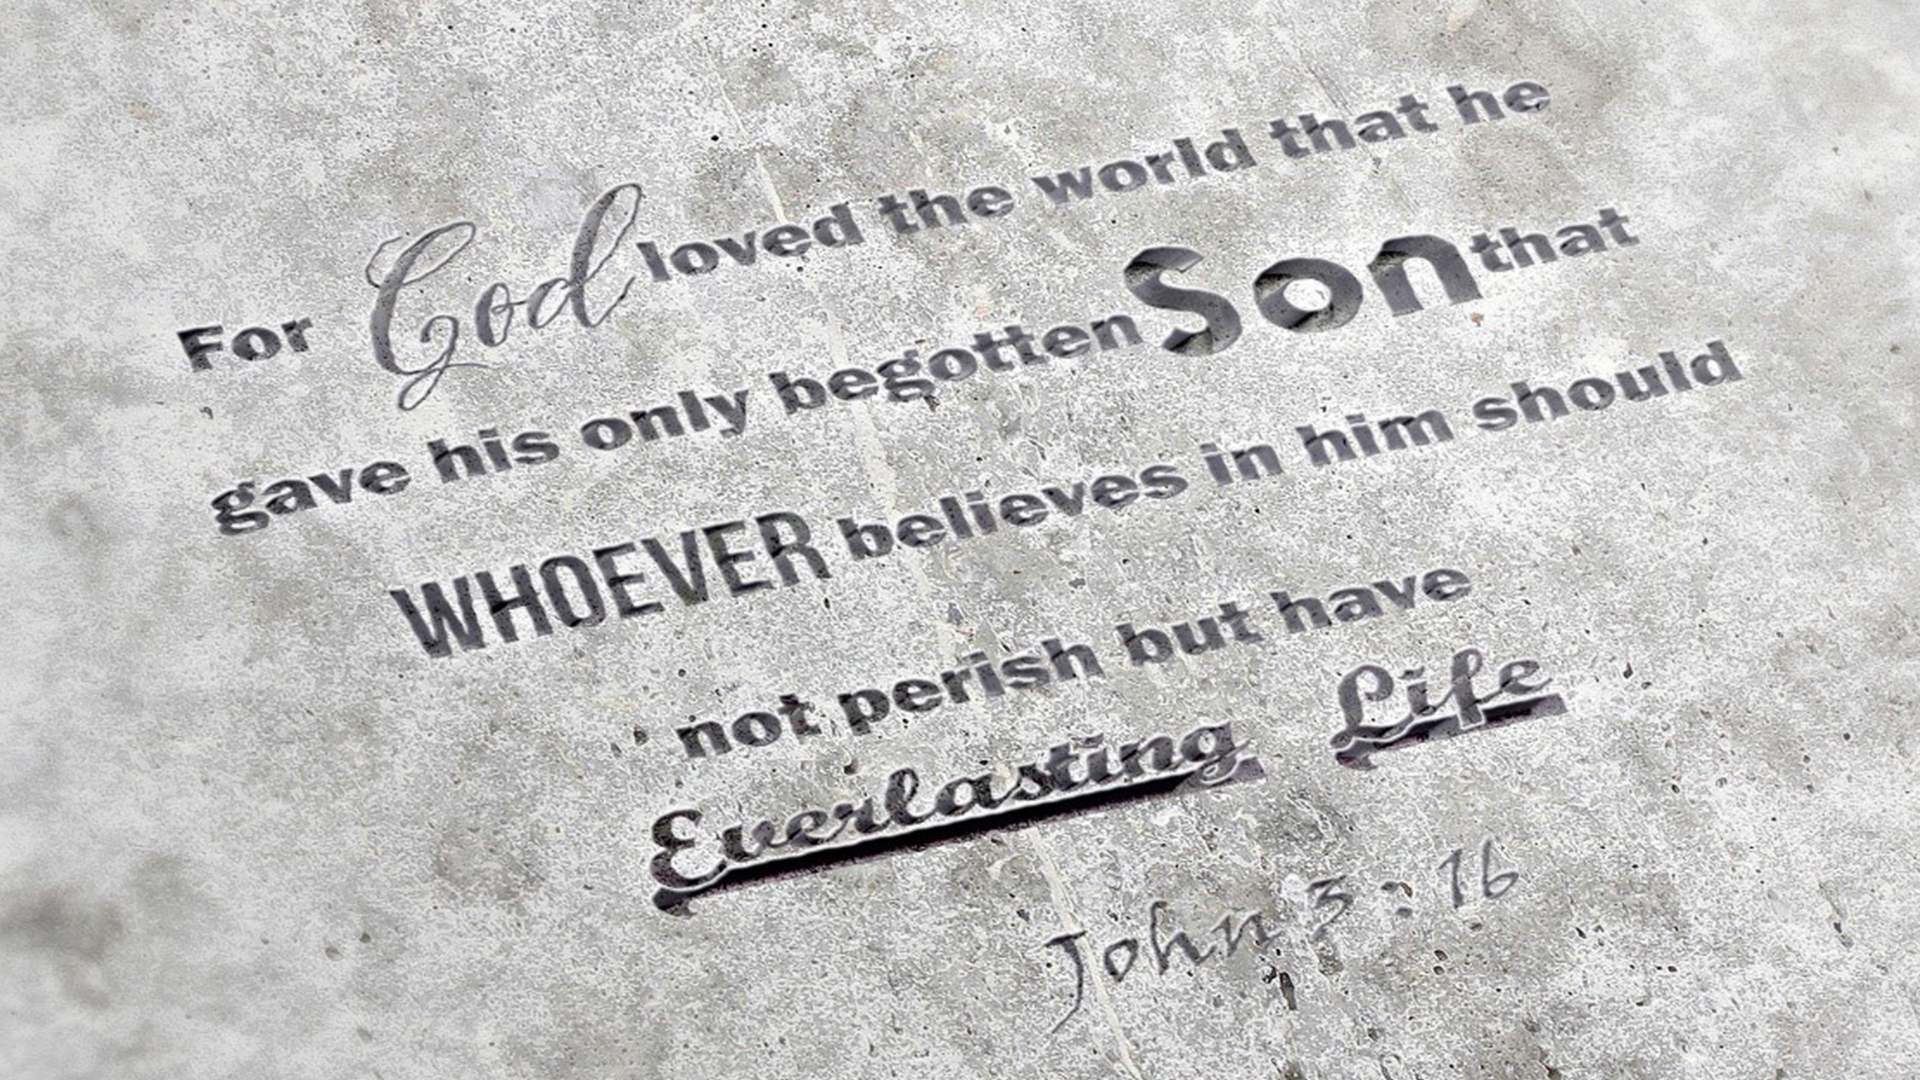 For God loved the world that he
gave his only begotten Son that
WHOEVER believes in him should
not perish but have
Everlasting Life
John 3:16